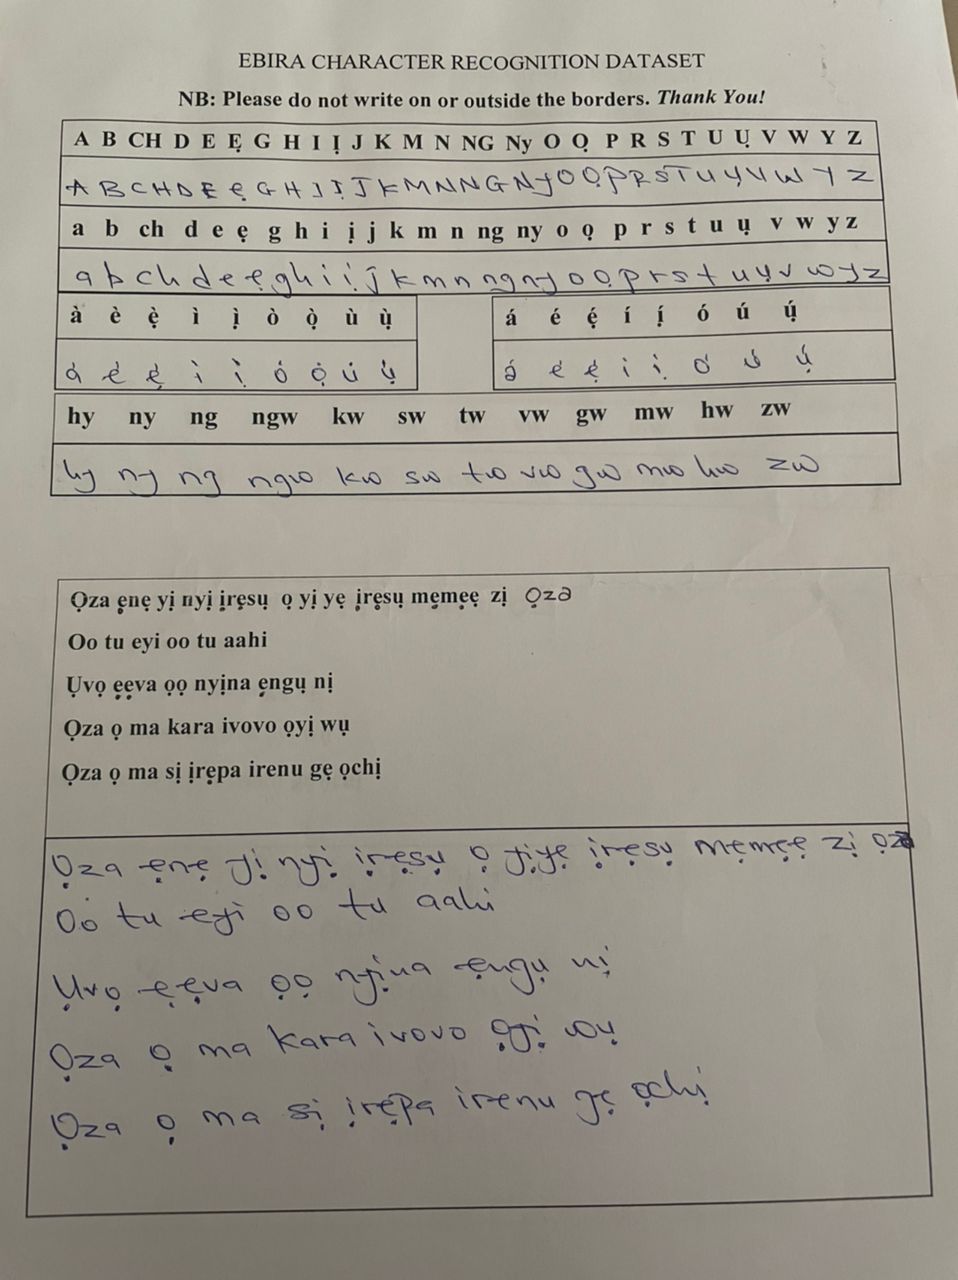 EBIRA CHARACTER RECOGNITION DATASET
NB: Please do not write on or outside the borders. Thank You!
A B CH D E Ẹ G H I Ị J K M N NG Ny O Ọ P R S T U Ụ V W Y Z
A B C H D E Ẹ G H I Ị J K M N N G N y O Ọ P R S T U Ụ V W Y Z
a b ch d e ẹ g h i ị j k m n ng ny o ọ p r s t u ụ v w y z
a b c h d e ẹ g h i ị j k m n ng ny o ọ p r s t u ụ v w y z
à è ẹ̀ ì ị̀ ò ọ̀ ù ụ̀ á é ẹ́ í ị́ ó ú ụ́
à è ẹ̀ ì ị̀ ò ọ̀ ù ụ̀ á é ẹ́ í ị́ ó ú ụ́
hy ny ng ngw kw sw tw vw gw mw hw zw
hy ny ng ngw kw sw tw vw gw mw hw zw
Ọza ẹnẹ yị nyị ịrẹsụ ọ yị yẹ ịrẹsụ mẹmẹẹ zị ọza
Oo tu eyi oo tu aahi
Ụvọ ẹẹva ọọ nyịna ẹngụ nị
Ọza ọ ma kara ivovo ọyị wụ
Ọza ọ ma sị ịrẹpa irenu gẹ ọchị
Ọza ẹnẹ yị nyị ịrẹsụ ọ yịyẹ ịrẹsụ mẹmẹẹ zị ọza
Oo tu eyi oo tu aahi
Ụvọ ẹẹva ọọ nyịna ẹngụ nị
Ọza ọ ma kara ivovo ọyị wụ
Ọza ọ ma sị ịrẹpa irenu gẹ ọchị